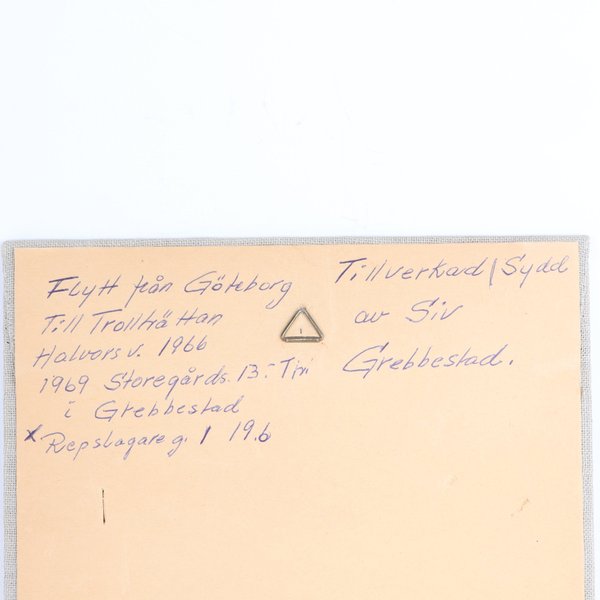 Flytt från Göteborg
Till Trollhättan
Halvorsv. 1966
1969 Storegårds. 13:
i Grebbestad
x Repslagareg. 1 19.6
Tillverkad / Sydd
av Siv
Grebbestad.